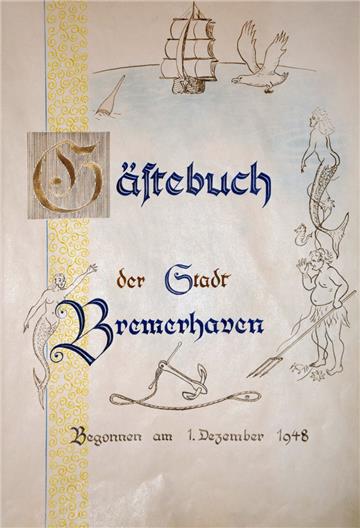 Gäſtebuch
der Stadt
Bremerhaven
Begonnen am 1. Dezember 1948